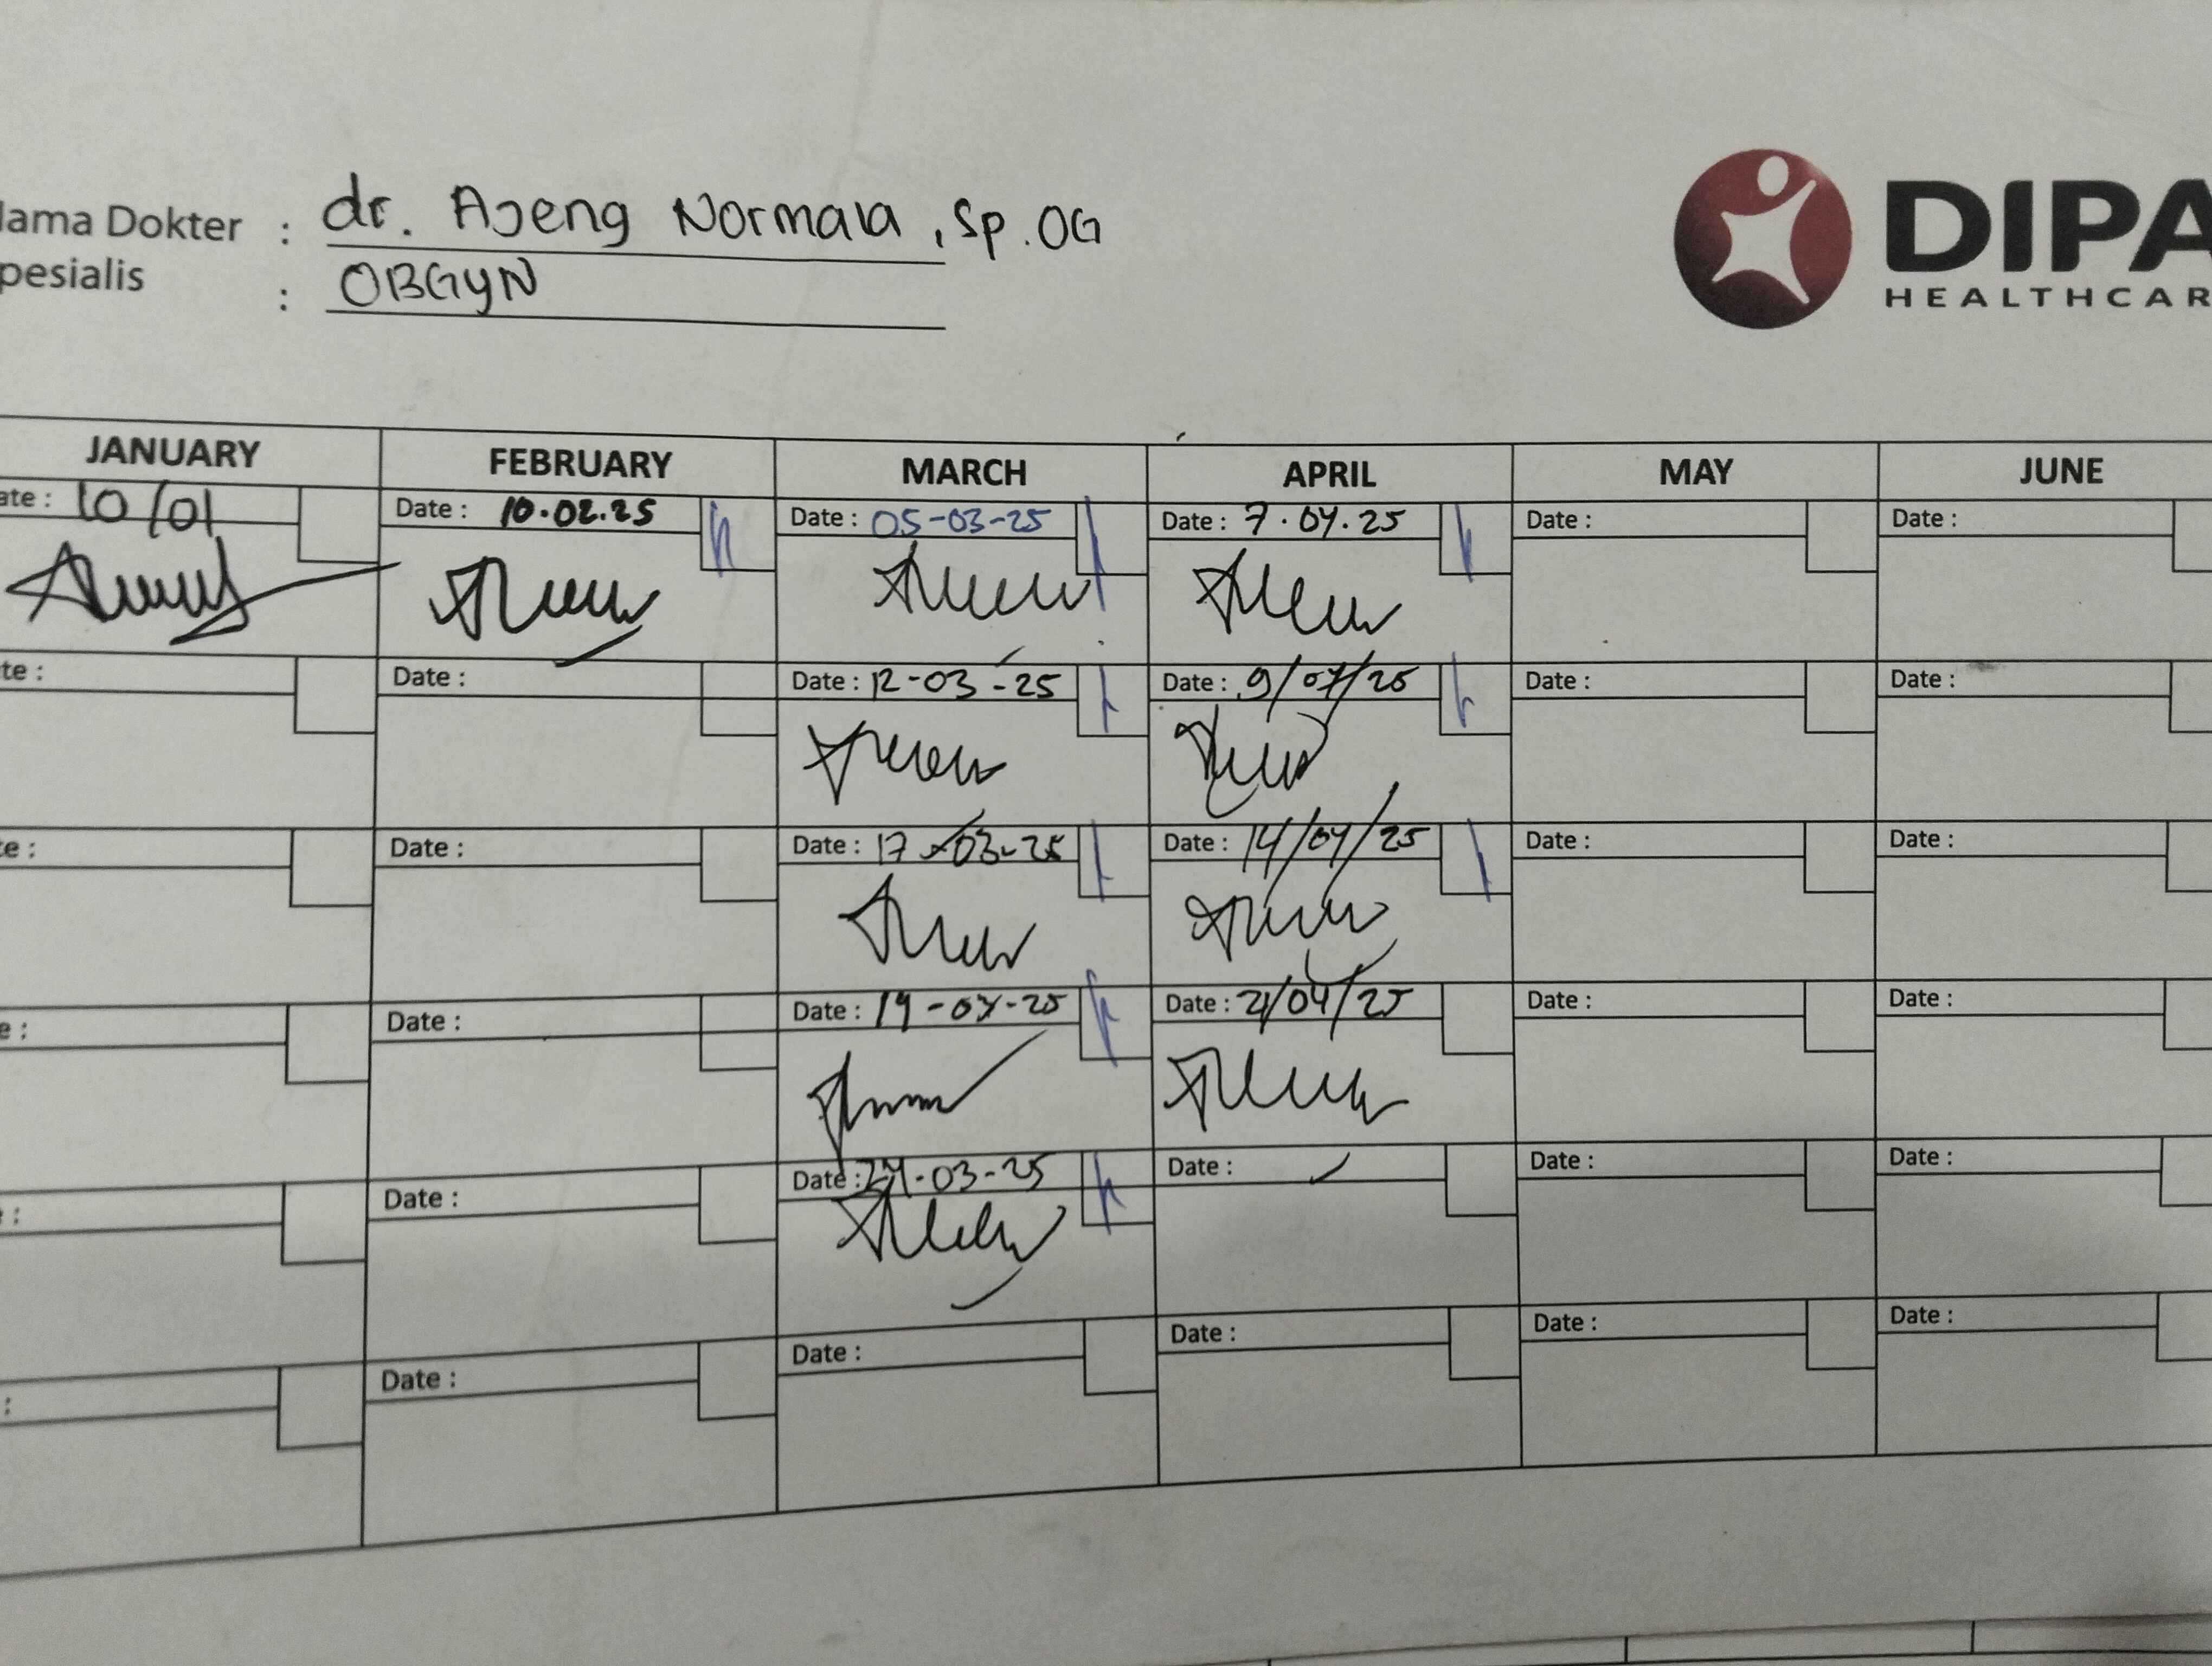 lama Dokter : dr. Ajeng Normala, Sp.OG
pesialis : OBGYN
DIPA
HEALTHCAR
JANUARY FEBRUARY MARCH APRIL MAY JUNE
ate : 10/01 Date : 10.02.25 Date : 05-03-25 Date : 7.04.25 Date : Date :
te : Date : Date : 12-03-25 Date : 9/04/25 Date : Date :
te : Date : Date : 17-03-25 Date : 14/04/25 Date : Date :
e : Date : Date : Date : 21/04/25 Date : Date :
: Date : Date : 24-03-25 Date : Date : Date :
: Date : Date : Date : Date : Date :